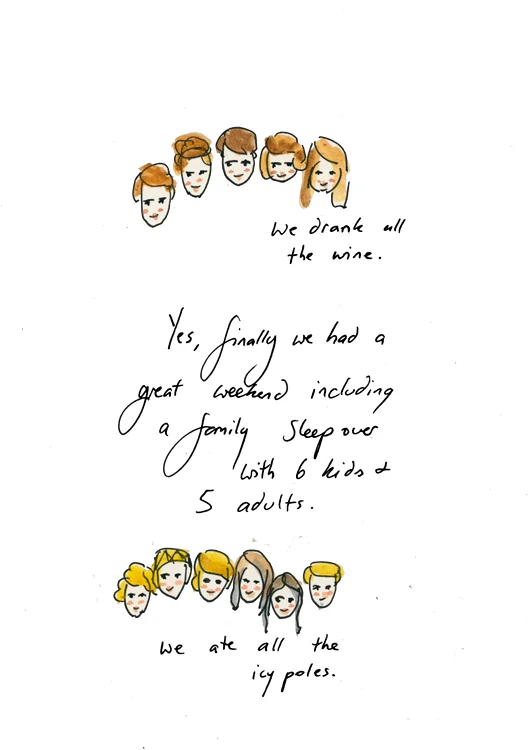 We drank all
the wine.
Yes, finally we had a
great weekend including
a family Sleep over
with 6 kids &
5 adults.
we ate all the
icy poles.